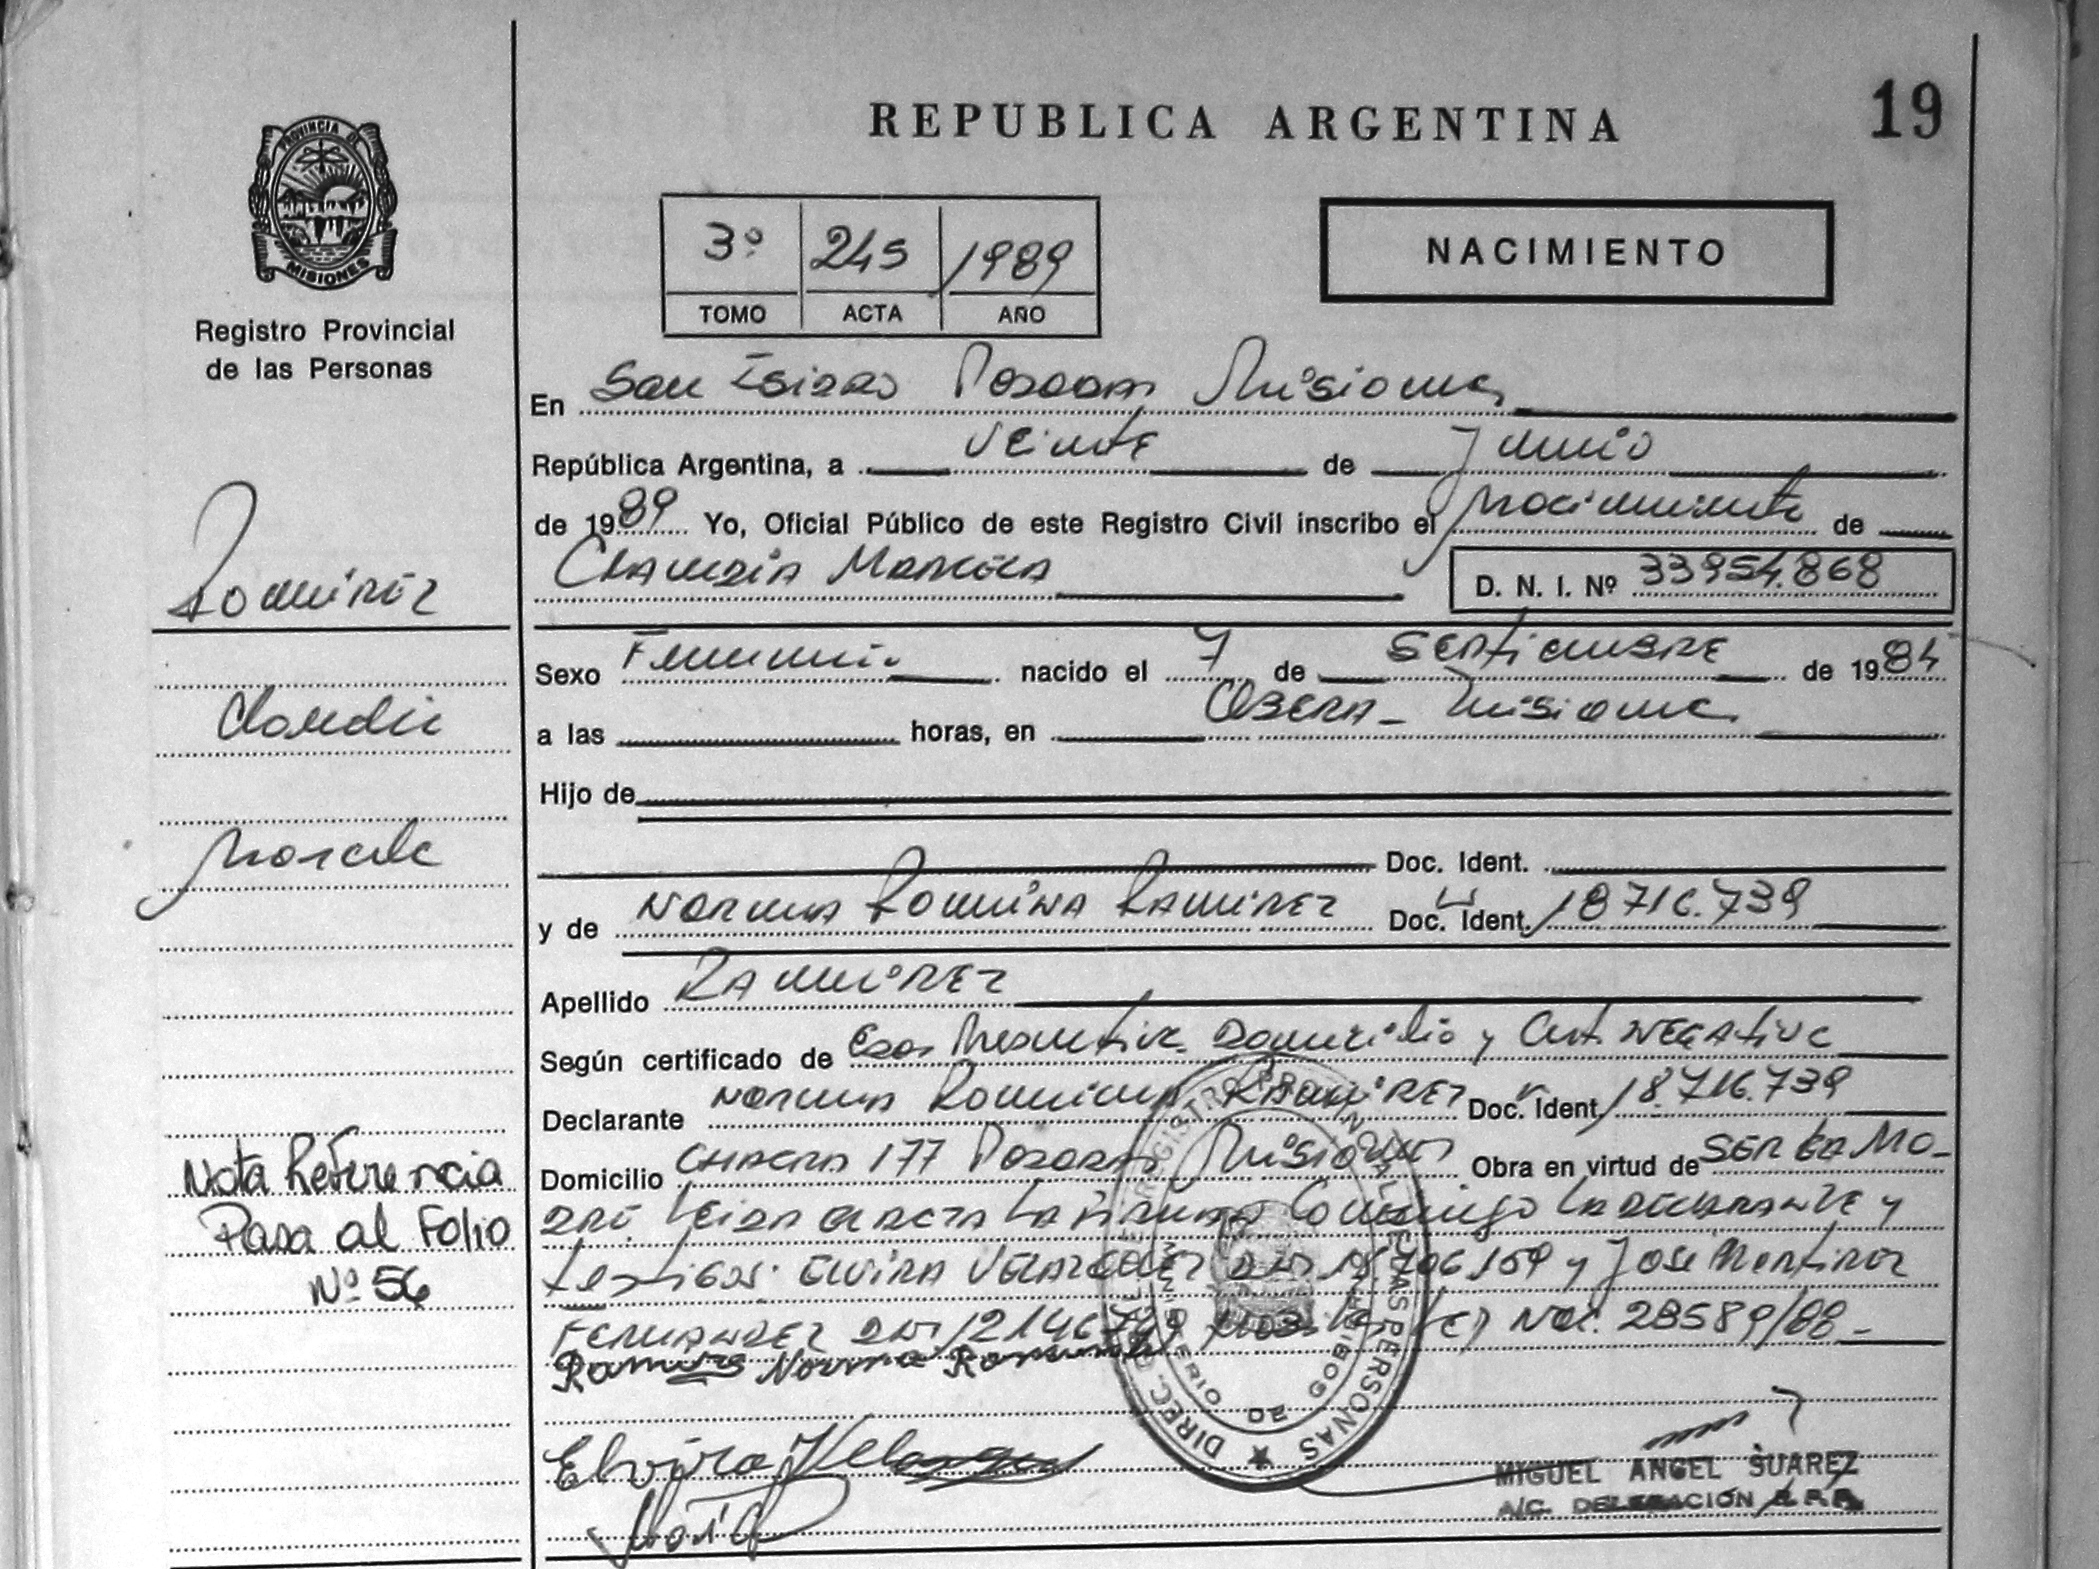 REPUBLICA ARGENTINA
19
PROVINCIA DE
MISIONES
Registro Provincial
de las Personas
3º 245 1989
TOMO ACTA AÑO
NACIMIENTO
En San Isidro Posadas Misiones
República Argentina, a Veinte de Junio
de 1989 Yo, Oficial Público de este Registro Civil inscribo el nacimiento de
Claudia Marcela
D. N. I. Nº 33954.868
Ramirez
Claudia
Marcela
Sexo Femenino nacido el 7 de SEPtiEMBRE de 1984
a las horas, en OBERA - Misiones
Hijo de
Doc. Ident.
y de NORMA ROMINA RAMIREZ Doc. Ident. 18716.739
Apellido RAMIREZ
Según certificado de Domicilio y Cert. NEGATIVO
Declarante NORMA ROMINA RAMIREZ Doc. Ident 18.716.739
Domicilio CHACRA 177 Posadas Misiones Obra en virtud de SER LA MA-
DRE. Leida el ACTA LA FIRMA Conmigo LA DECLARANTE y
testigos: ELVIRA VELAZQUEZ DNI y Jose Martinez
FERNANDEZ DNI Nac. 28589/88 -
Ramires Norma Romina
Elvira Velazquez
Nota Referencia
Pasa al Folio
Nº 56
DIREC. REGISTRO PROVINCIAL DE LAS PERSONAS
MINISTERIO DE GOBIERNO
MIGUEL ANGEL SUAREZ
A/C. DELEGACIÓN R.P.P.